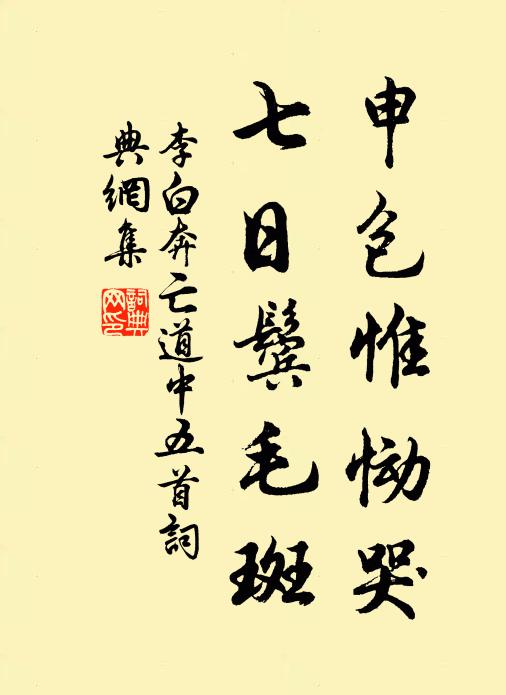 申包惟恸哭
七日鬓毛斑
李白奔亡道中五首詞
典網集
詞典
网印